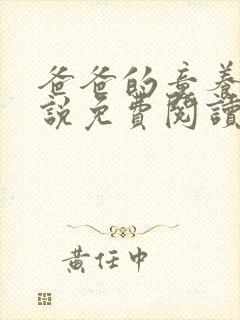 爸爸的童养
說免費閱讀
黃任中